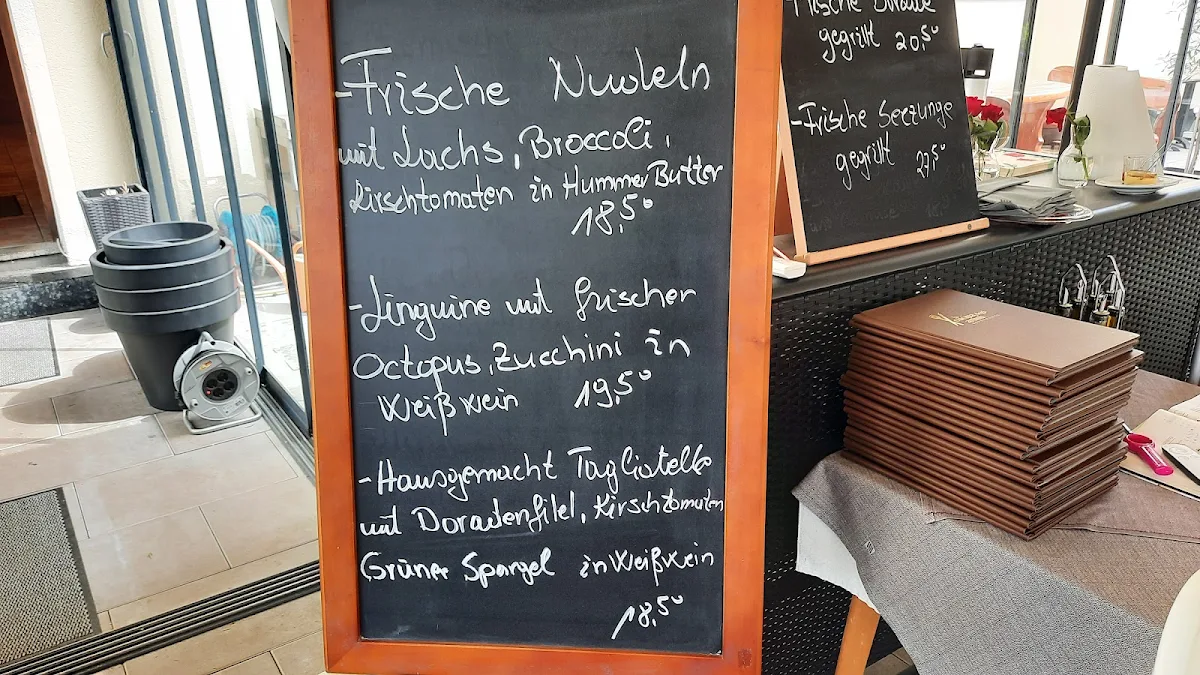 -Frische Nudeln
mit Lachs, Broccoli,
Kirschtomaten in Hummer Butter
18,50
-Linguine mit frischer
Octopus, Zucchini in
Weißwein 19,50
-Hausgemacht Taglistelle
mit Doradenfilel, Kirschtomaten
Grüner Spargel in Weißwein
18,50
Frische Dorade
gegrillt 20,50
-Frische Seezunge
gegrillt 27,50